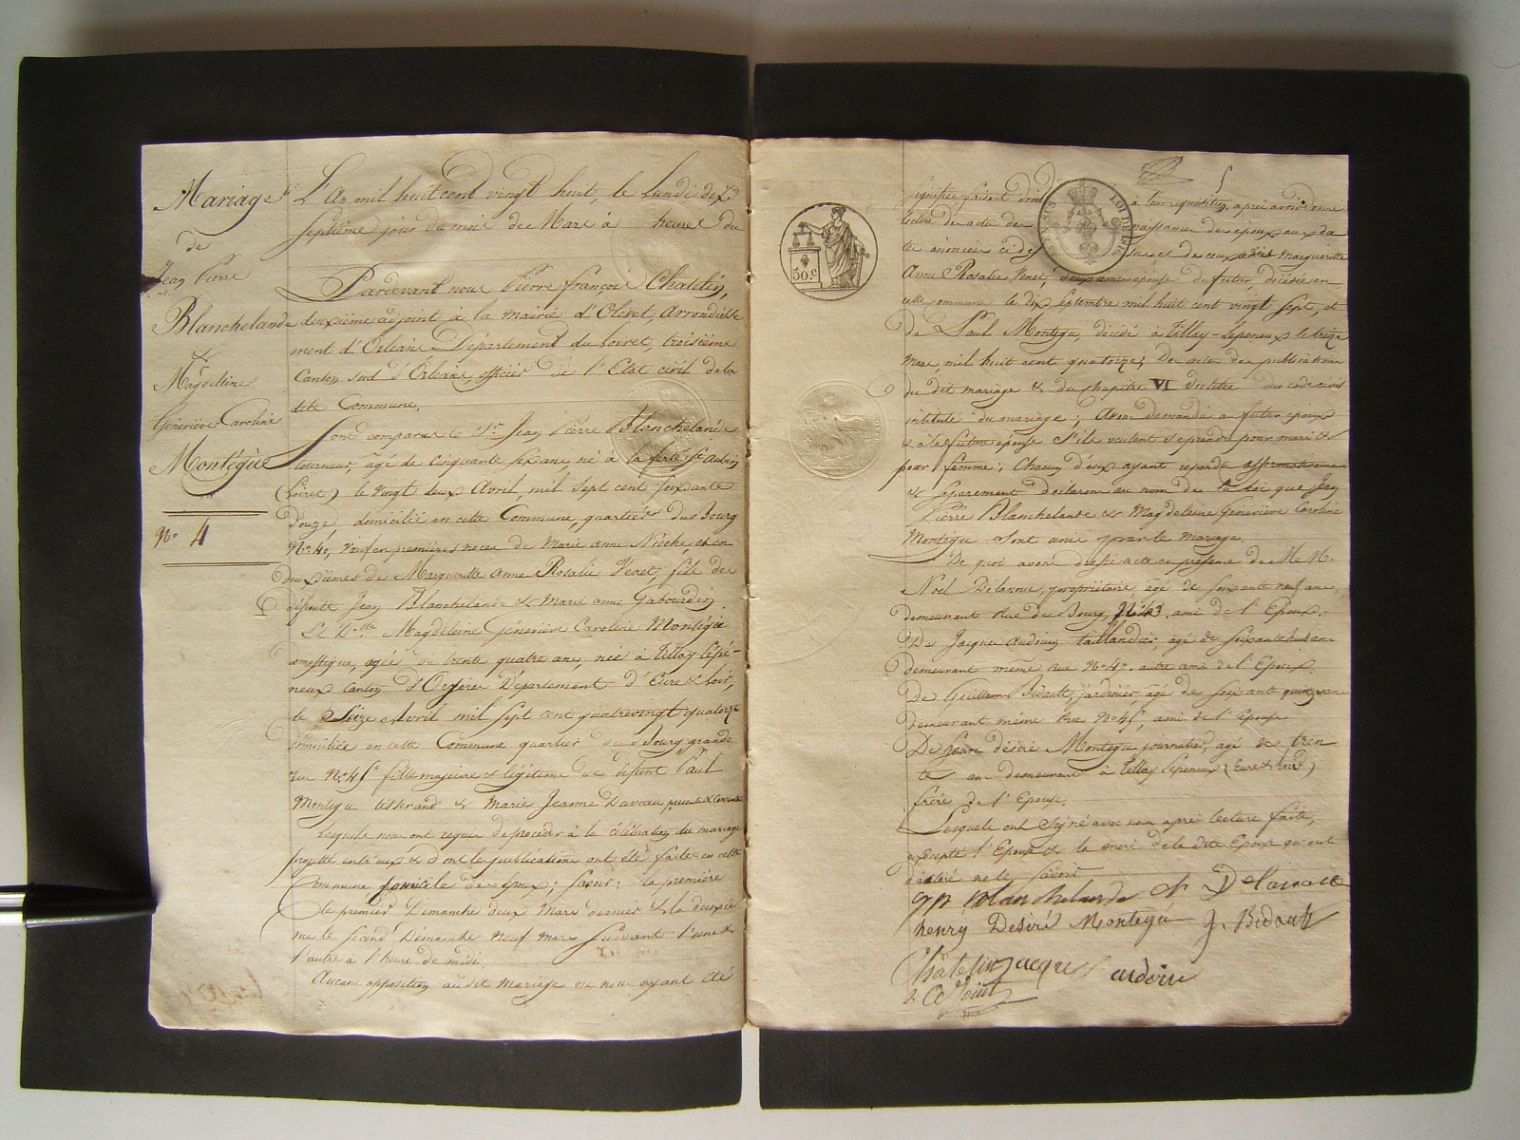 Mariage
de
Jean Pierre
Blanchelande
&
Magdeleine
Geneviève Caroline
Montégu
N° 4
L'An mil huit cent vingt huit, le Lundi dix
septième jour du mois de Mars à heure du
Pardevant nous Pierre françois Chatelin,
deuxième adjoint à la mairie d'Olivet, Arrondisse
ment d'Orléans Département du Loiret, troisième
Canton sud d'Orléans, officier de l'Etat civil de la
dite Commune.
Sont comparus le Sr. Jean Pierre Blanchelande
tourneur, âgé de cinquante six ans, né à la ferté St. Aubin
(Loiret) le vingt deux Avril, mil sept cent soixante
douze, domicilié en cette Commune, quartier du Bourg
N° 40, veuf en premières noces de Marie anne Nioche, et en
deuxièmes de Marguerite Anne Rosalie Venet, fils de
défunts Jean Blanchelande & Marie anne Gabourdin.
Et Dlle Magdeleine Géneviève Caroline Montégu
domestique, agée de trente quatre ans, née à Tillay Lépé-
neux canton d'Orgères Département d'Eure & Loir,
le Seize Avril mil sept cent quatrevingt quatorze
domiciliée en cette Commune quartier du Bourg grande
rue N° 45 fille majeure & légitime de défunt Paul
Montégu tisserand & Marie Jeanne Daveau présente & Consente
Lesquels nous ont requis de procéder à la célébration du mariage
projetté entr'eux & dont les publications ont été faites en cette
Commune domicile des époux; savoir: la première
le premier Dimanche deux Mars dernier & la deuxiè
me le second Dimanche neuf Mars suivant l'une &
l'autre à l'heure de midi.
Aucune opposition au dit mariage ne nous ayant été
5
signifiée faisant droit à leur réquisition, après avoir donné
lecture des actes de naissances des époux aux da
tes énoncées ci des sus et de ceux Marguerite
Anne Rosalie Venet, deuxième épouse du futur, décédée en
cette commune le dix septembre mil huit cent vingt sept, et
de Paul Montégu, décédé à Tillay-Lépeneux le treize
mars mil huit cent quatorze; des actes des publications
du dit mariage & du chapitre VI du titre du code civil
intitulé du mariage; Avons demandé au futur époux
& à la future épouse s'ils veulent se prendre pour mari &
pour femme; Chacun d'eux ayant répondu affirmativement
& séparément déclarons au nom de la loi que Jean
Pierre Blanchelande & Magdeleine Geneviève Caroline
Montégu sont unis par le mariage.
De quoi avons dressé acte en présence de MM.
Noël Delanoue, propriétaire, âgé de soixante neuf ans,
demeurant Rue du Bourg, N° 43, ami de l'Epoux.
De Jacques Audoin taillandier, agé de soixante huit ans
demeurant même rue N° 40 autre ami de l'Epoux
De Guillaume Bidault, jardinier, âgé de soixante quinze ans
demeurant même Rue N° 45, ami de l'épouse
De Henri désiré Montégu journalier, agé de tren
te ans demeurant à Tillay Lépeneux (Eure & Loir)
frère de l'Epouse.
Lesquels ont signé avec nous après lecture faite,
excepté l'Epouse & la mère de la dite Epouse qui ont
déclaré ne le savoir
J P Blanchelande N Delanoue
henry Desiré Montégu g. Bidault
Châtelin Jacques audoin
2. adjoint
50.c